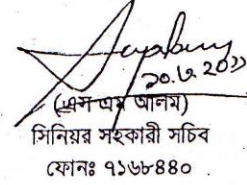 ২০.৬.২০১১
(এস এম আলম)
সিনিয়র সহকারী সচিব
ফোনঃ ৭১৬৮৪৪০